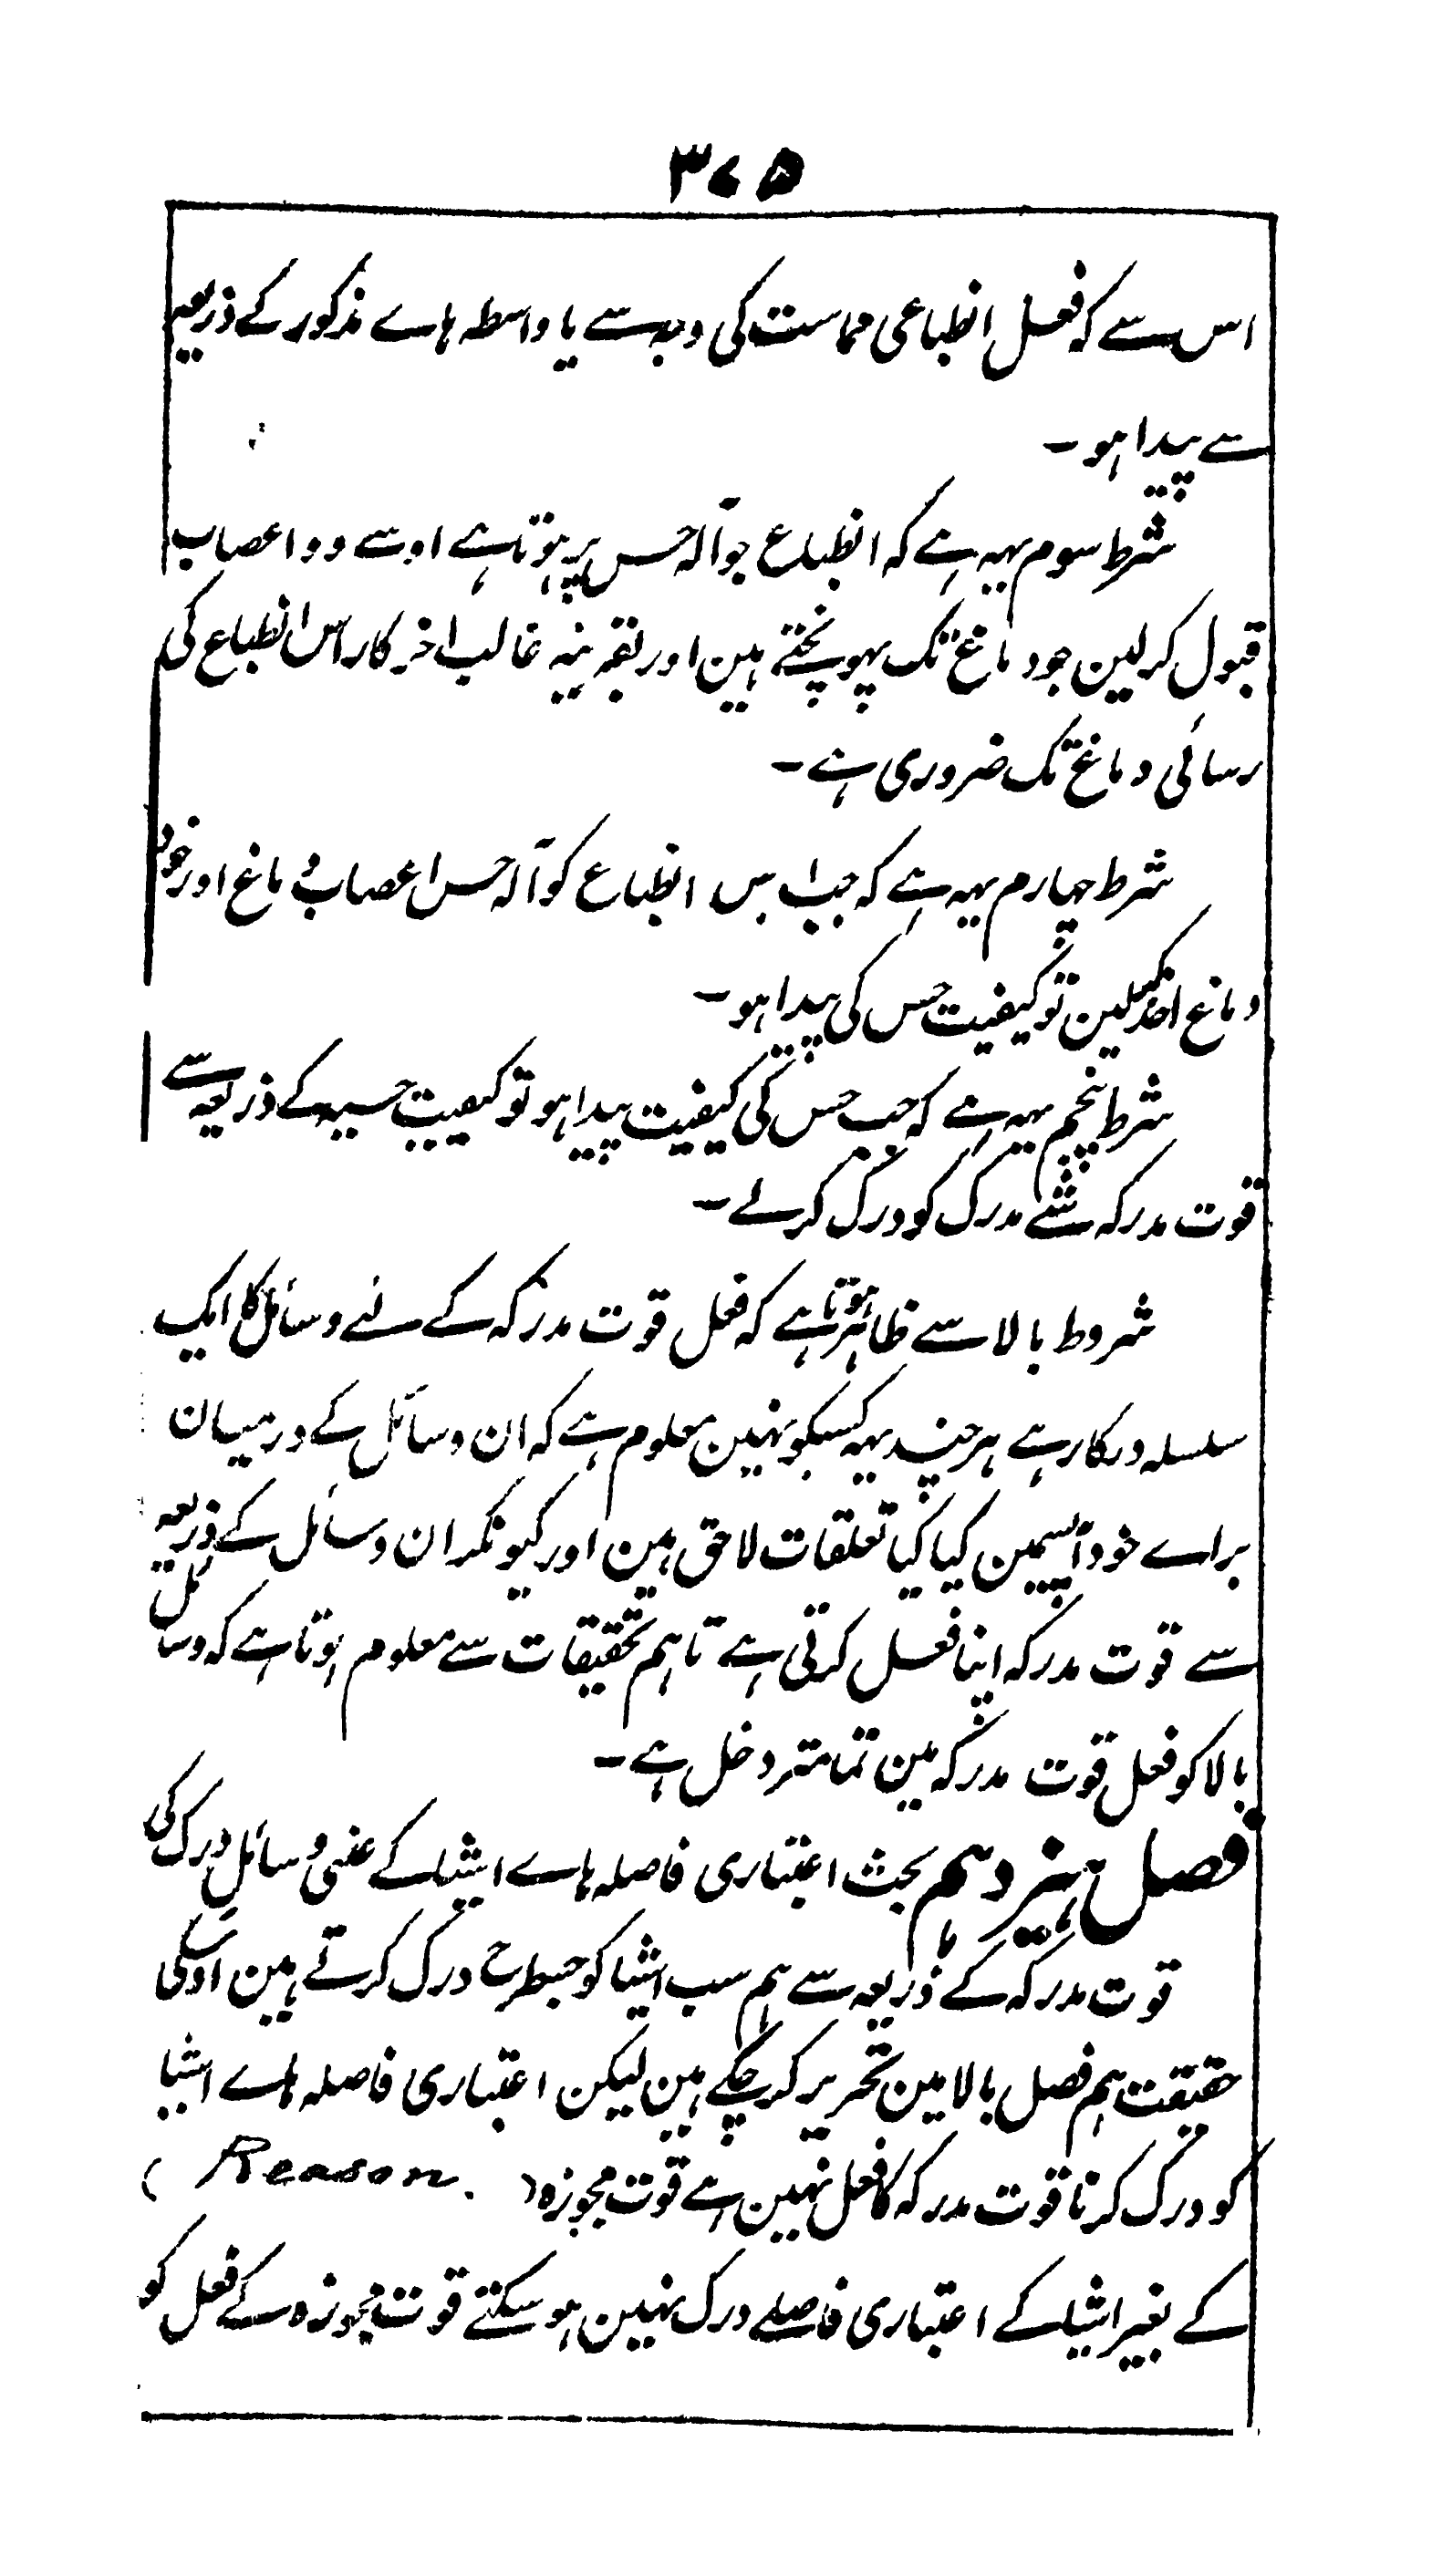 ۳۷۵
اس سے کہ فعل انطباعی مماست کی وجہ سے یا واسطہ ہاے مذکور کے ذریعہ
سے پیدا ہو ۔
شرط سوم یہہ ہے کہ انطباع جو آلہ حس پر ہوتا ہے اوسے وہ اعصاب
قبول کرلین جو دماغ تک پہونچتے ہین اور بقرینہ غالب اخر کار اس انطباع کی
رسائی دماغ تک ضروری ہے ۔
شرط چہارم یہہ ہے کہ جب اس انطباع کو آلہ حس اعصاب دماغ اور خود
دماغ اخذ کرلین تو کیفیت حس کی پیدا ہو ۔
شرط پنجم یہہ ہے کہ جب حس کی کیفیت پیدا ہو تو کیفیت حسیہ کے ذریعہ سے
قوت مدرکہ شے مدرک کو درک کرلے ۔
شروط بالا سے ظاہر ہوتا ہے کہ فعل قوت مدرکہ کے لئے وسائل کا ایک
سلسلہ درکار ہے ہر چند یہہ کسیکو نہین معلوم ہے کہ ان وسائل کے درمیان
براے خود آپسمین کیا کیا تعلقات لاحق ہین اور کیونکر ان وسائل کے ذریعہ
سے قوت مدرکہ اپنا فعل کرتی ہے تاہم تحقیقات سے معلوم ہوتا ہے کہ وسائل
بالا کو فعل قوت مدرکہ مین تمامتر دخل ہے ۔
فصل ہیزدہم بحث اعتباری فاصلہ ہاے اشیا کے وسائل درک کی
قوت مدرکہ کے ذریعہ سے ہم سب اشیا کو جسطرح درک کرتے ہین اوسکی
حقیقت ہم فصل بالا مین تحریر کرچکے ہین لیکن اعتباری فاصلہ ہاے اشیا
کو درک کرنا قوت مدرکہ کا فعل نہین ہے قوت مجوزہ ( Reason. )
کے بغیر اشیا کے اعتباری فاصلے درک نہین ہو سکتے قوت مجوزہ کے فعل کو